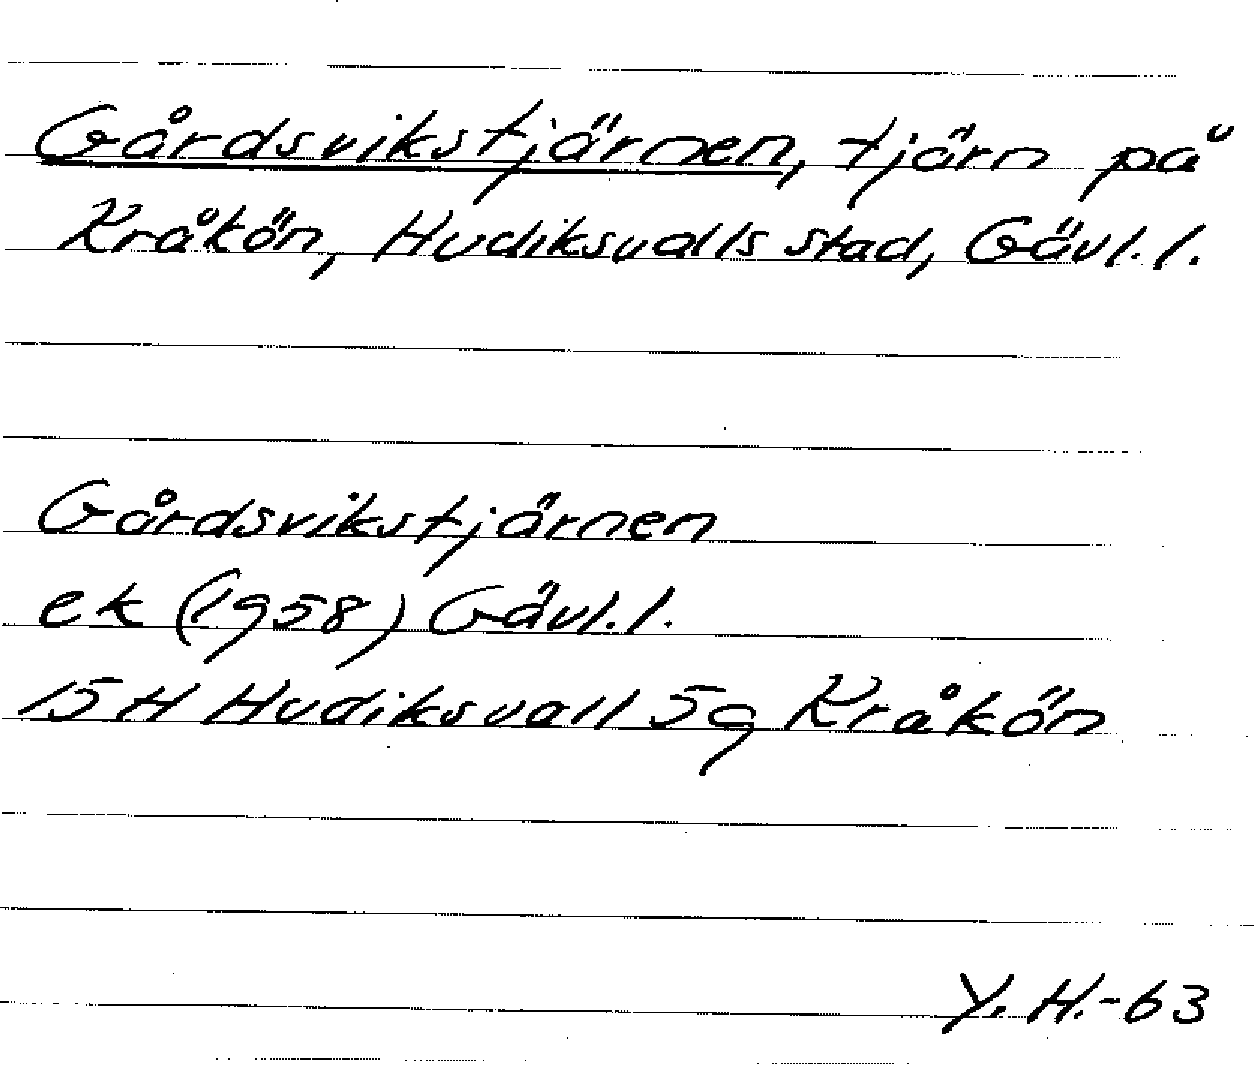 Gårdsvikstjärnen, tjärn på
Kråkön, Hudiksvalls stad, Gävl.l.
Gårdsvikstjärnen
ek (1958) Gävl.l.
15H Hudiksvall 5g Kråkön
Y.H.-63